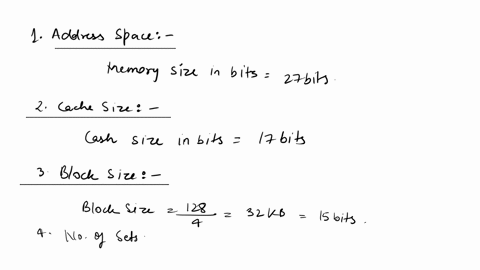 1. Address Space:-
Memory size in bits = 27bits.
2. Cache Size:-
Cash size in bits = 17bits
3. Block Size:-
Block Size = 128/4 = 32KB = 15bits.
4. No. of Sets.